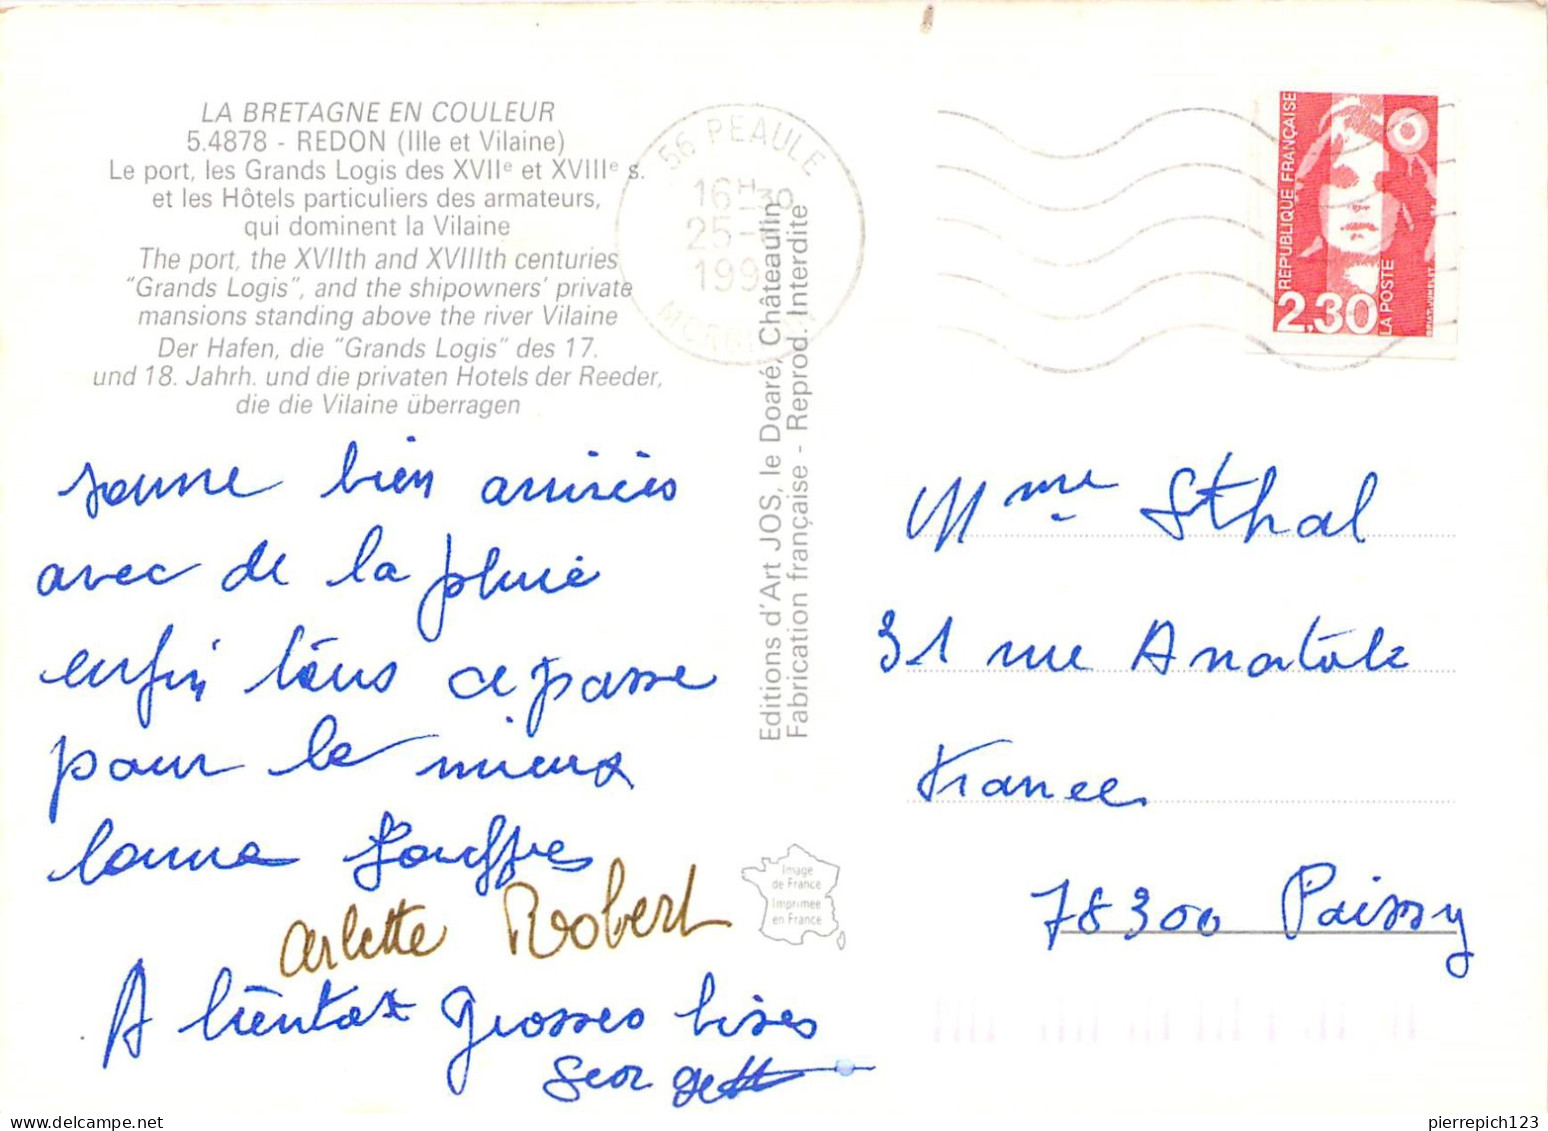 LA BRETAGNE EN COULEUR
5.4878 - REDON (Ille et Vilaine)
Le port, les Grands Logis des XVIIe et XVIIIe s.
et les Hôtels particuliers des armateurs,
qui dominent la Vilaine
The port, the XVIIth and XVIIIth centuries
"Grands Logis", and the shipowners' private
mansions standing above the river Vilaine
Der Hafen, die "Grands Logis" des 17.
und 18. Jahrh. und die privaten Hotels der Reeder,
die die Vilaine überragen
56 PEAULE
16H30
25-
199
MORBIHAN
REPUBLIQUE FRANÇAISE
2,30
LA POSTE
Editions d'Art JOS, le Doaré, Châteaulin
Fabrication française - Reprod. Interdite
bien
avec de la pluie
enfin tous ce passe
pour le mieux
arlette Robert
A bientot grosses bises
Georgette
Image
de France
Imprimée
en France
Mme Sthal
31 rue Anatole
France
78300 Poissy
pierrepich123